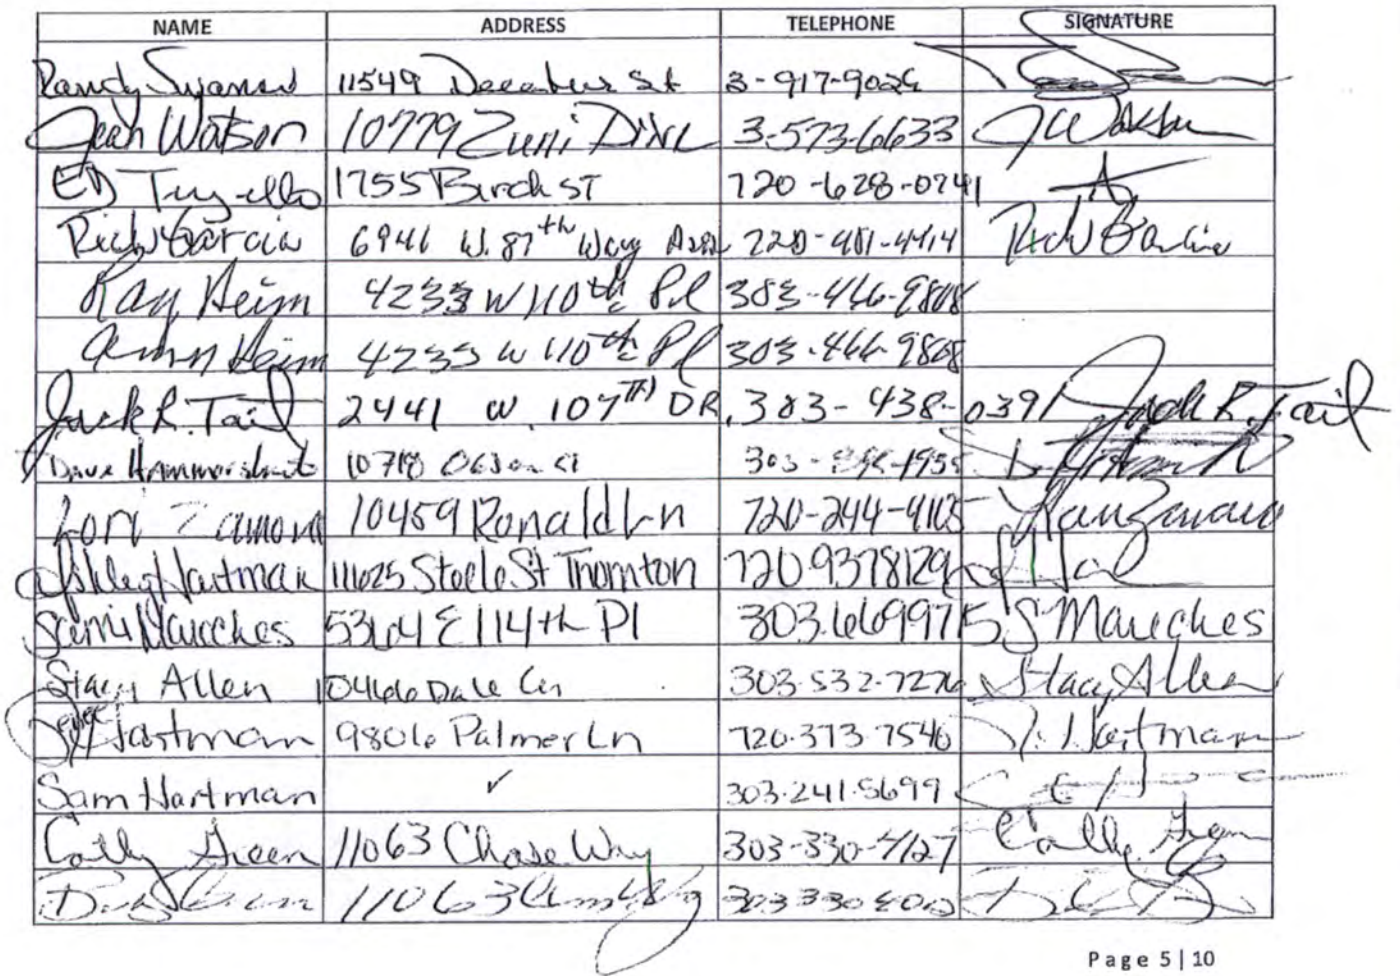 NAME ADDRESS TELEPHONE SIGNATURE
Randy 11549 December St 3-917-9026
Jean Watson 10779 Zuni Drive 3-573-6633 J Watson
ED 1755 Birch ST 720-628-0741
Rick Garcia 6941 W. 87th Way 720-481-4414 Rick Garcia
Ray Heim 4233 W 110th Pl 303-466-9808
Ann Heim 4233 W 110th Pl 303-466-9808
Jack R. Tail 2441 W. 107TH DR. 303-438-0391 Jack R. Tail
Dave 303-
Lori 10459 Ronald Ln 720-244-4105
Ashley Hartman 11625 Steele St Thornton 7209378129
Sami Mauches 5364 E 114th Pl 303.6699715 S Mauches
Stacy Allen 10466 Dale Cir 303-532-7276 Stacy Allen
Hartman 9806 Palmer Ln 720-373-7546 Hartman
Sam Hartman ✓ 303-241-5699
Cally Green 11063 Chase Way 303-330-4127 Cally Green
11063
Page 5|10